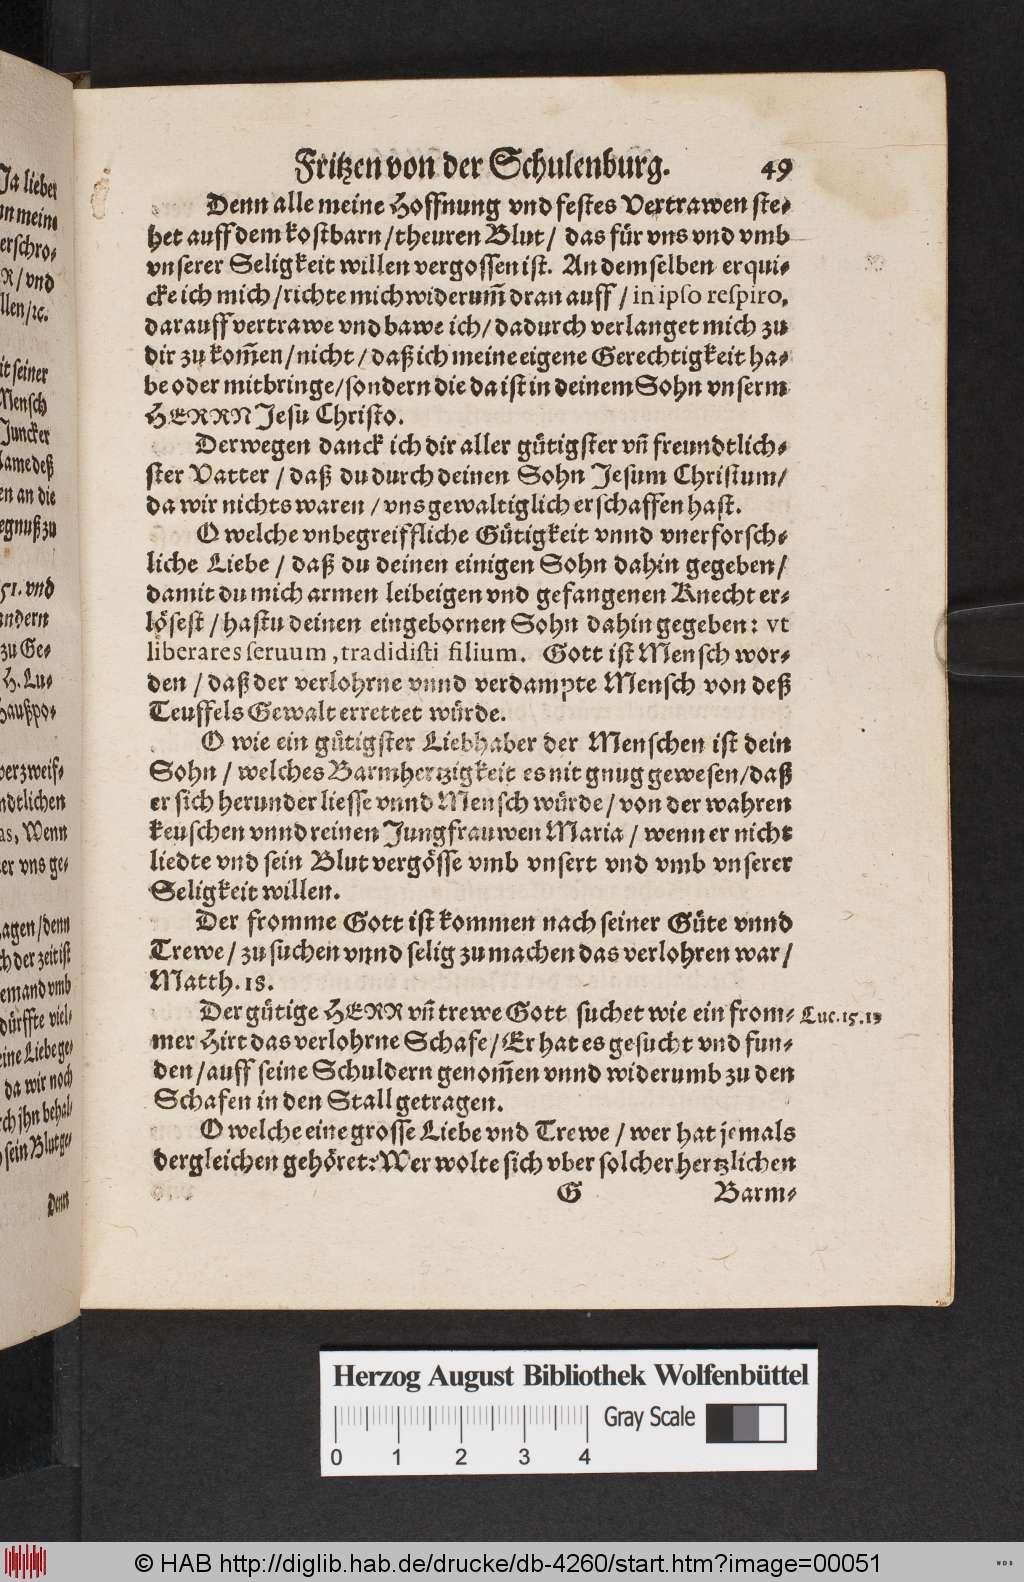 Ja lieber
erschro-
R / vnd
llen / ꝛc.
it seiner
Mensch
Juncker
Name deß
en an die
egnuß zu
51. vnd
andern
zu Ge-
H. Lu-
Haußpo-
verzweif-
ndtlichen
as, Wenn
er vns ge-
agen / denn
ch der zeit ist
emand vmb
dürffte viel-
eine Liebe ge-
da wir noch
ch jhn behal-
sein Blut ge-
Denn
Fritzen von der Schulenburg. 49
Denn alle meine Hoffnung vnd festes Vertrawen ste-
het auff dem kostbarn / theuren Blut / das für vns vnd vmb
vnserer Seligkeit willen vergossen ist. An demselben erqui-
cke ich mich / richte mich widerum̃ dran auff / in ipso respiro,
darauff vertrawe vnd bawe ich / dadurch verlanget mich zu
dir zu kom̃en / nicht / daß ich meine eigene Gerechtigkeit ha-
be oder mitbringe / sondern die da ist in deinem Sohn vnserm
HERRN Jesu Christo.
Derwegen danck ich dir aller gütigster vñ freundtlich-
ster Vatter / daß du durch deinen Sohn Jesum Christum /
da wir nichts waren / vns gewaltiglich erschaffen hast.
O welche vnbegreiffliche Gütigkeit vnnd vnerforsch-
liche Liebe / daß du deinen einigen Sohn dahin gegeben /
damit du mich armen leibeigen vnd gefangenen Knecht er-
lösest / hastu deinen eingebornen Sohn dahin gegeben: vt
liberares seruum, tradidisti filium. Gott ist Mensch wor-
den / daß der verlohrne vnnd verdampte Mensch von deß
Teuffels Gewalt errettet würde.
O wie ein gütigster Liebhaber der Menschen ist dein
Sohn / welches Barmhertzigkeit es nit gnug gewesen / daß
er sich herunder liesse vnnd Mensch würde / von der wahren
keuschen vnnd reinen Jungfrauwen Maria / wenn er nicht
liedte vnd sein Blut vergösse vmb vnsert vnd vmb vnserer
Seligkeit willen.
Der fromme Gott ist kommen nach seiner Güte vnnd
Trewe / zu suchen vnnd selig zu machen das verlohren war /
Matth. 18.
Der gütige HERR vñ trewe Gott suchet wie ein from- Luc. 15. 19
mer Hirt das verlohrne Schafe / Er hat es gesucht vnd fun-
den / auff seine Schuldern genom̃en vnnd widerumb zu den
Schafen in den Stall getragen.
O welche eine grosse Liebe vnd Trewe / wer hat jemals
dergleichen gehöret? Wer wolte sich vber solcher hertzlichen
G Barm-
Herzog August Bibliothek Wolfenbüttel
Gray Scale
0 1 2 3 4
© HAB http://diglib.hab.de/drucke/db-4260/start.htm?image=00051